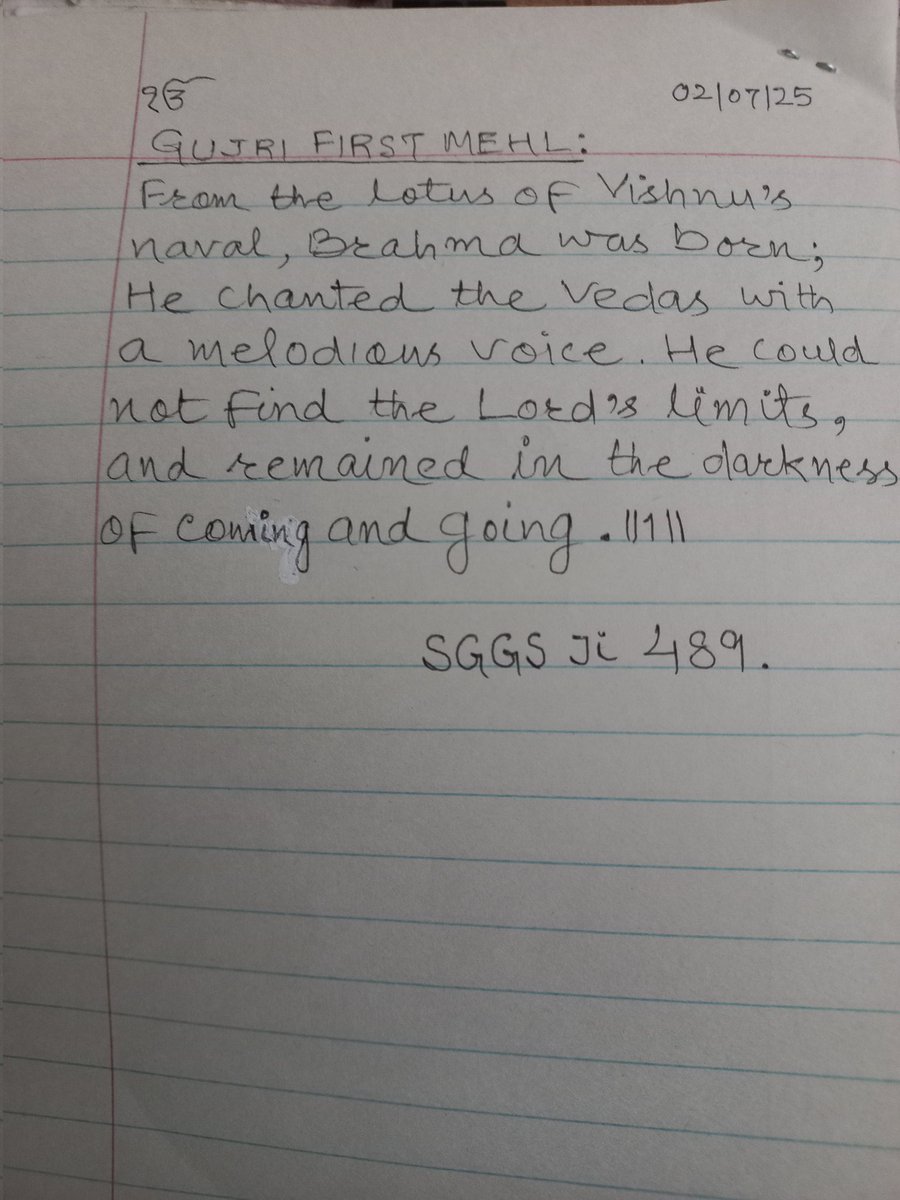 ੴ
02/07/25
GUJRI FIRST MEHL:
From the lotus of Vishnu's
naval, Brahma was born;
He chanted the Vedas with
a melodious voice. He could
not find the Lord's limits,
and remained in the darkness
of coming and going. ||1||
SGGS Ji 489.